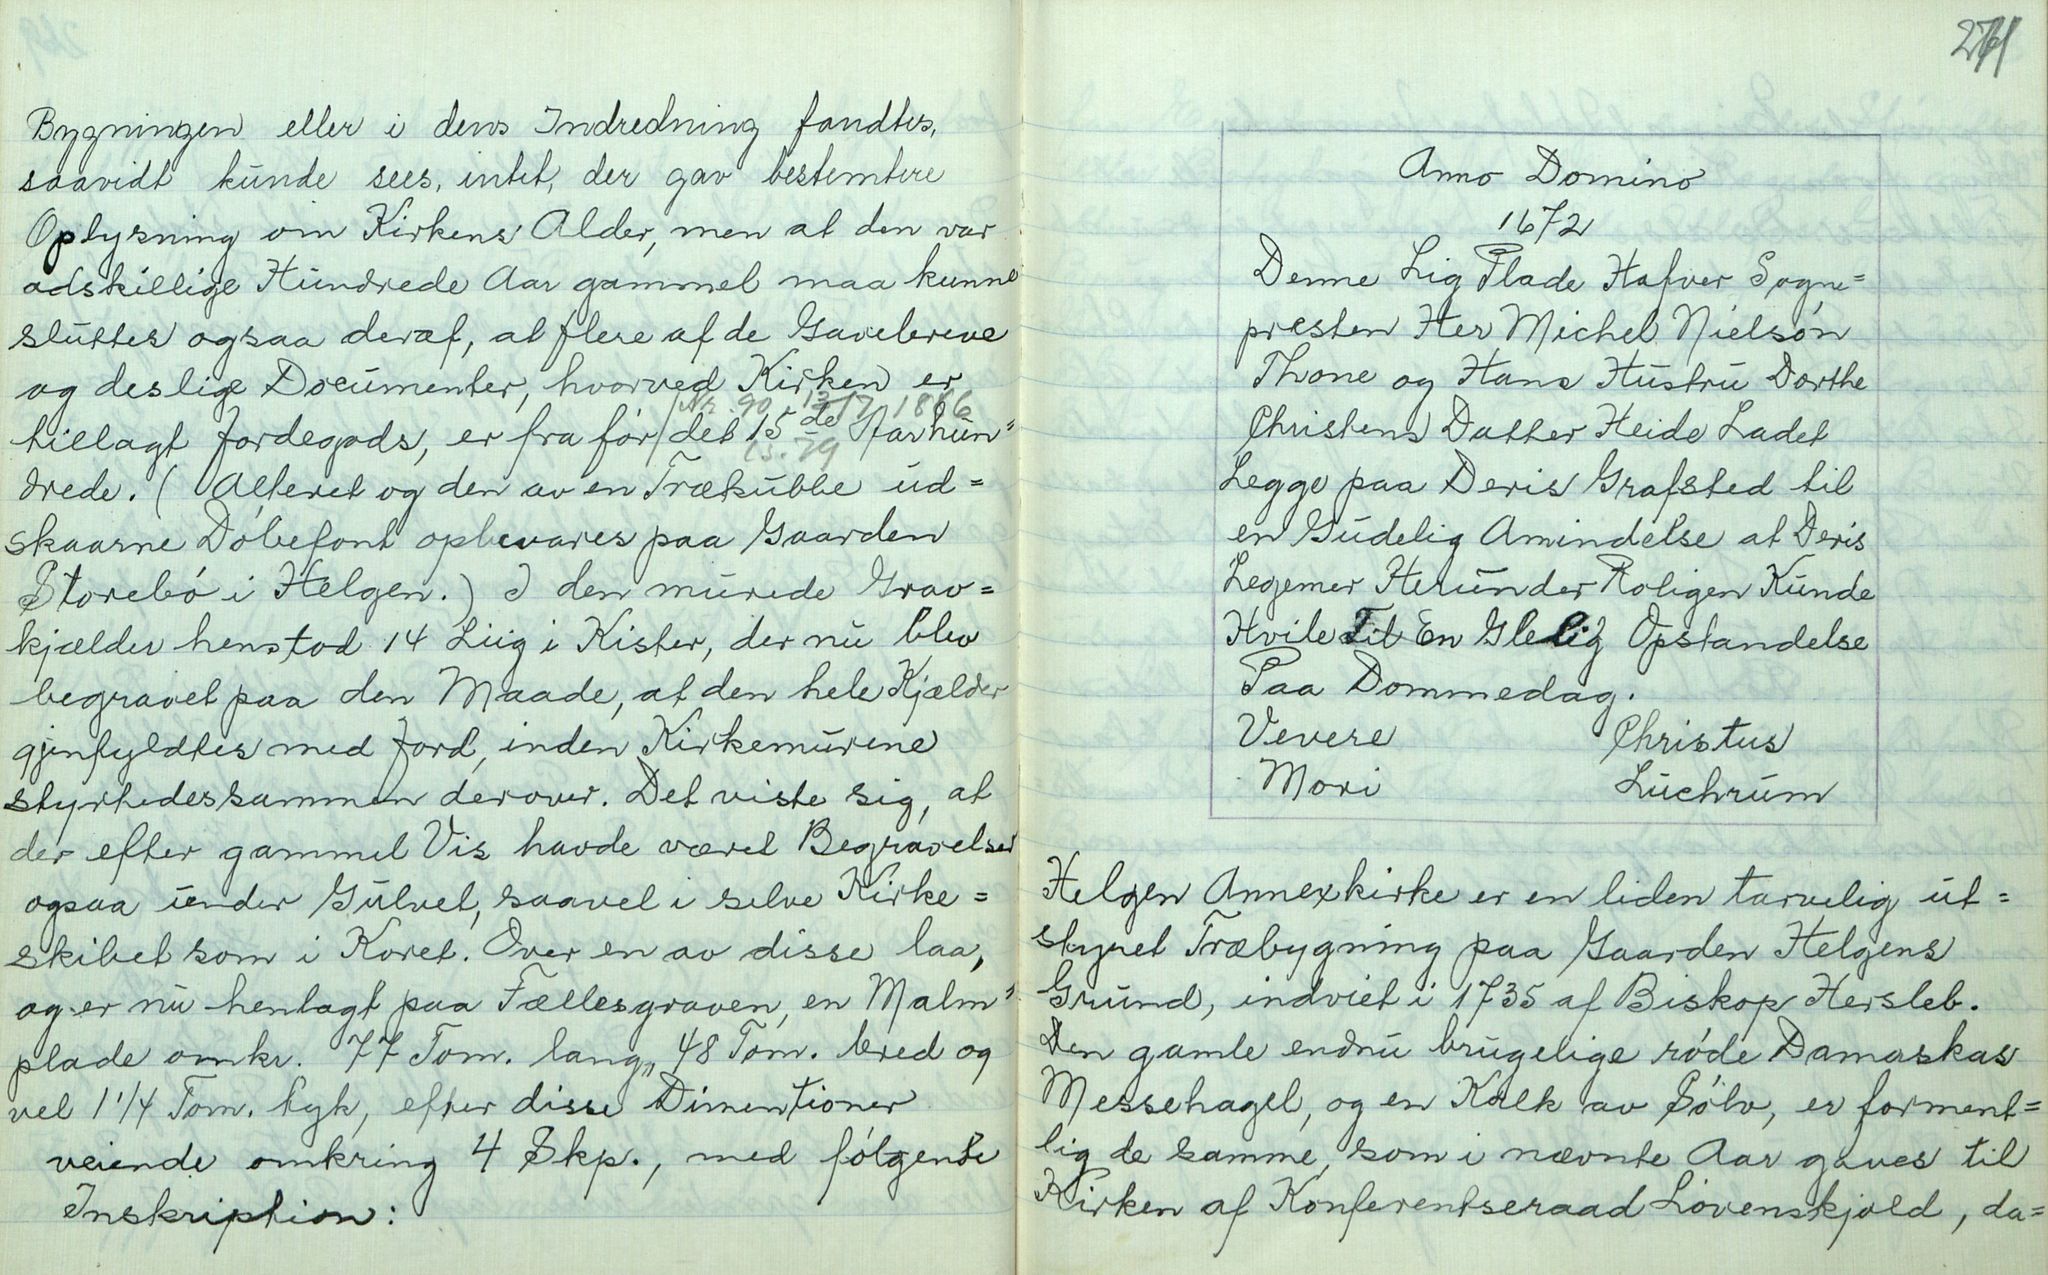 Bygningen eller i dens Indredning fandtes,
saavidt kunde sees, intet, der gav bestemtere
Oplysning om Kirkens Alder, men at den var
adskillige Hundrede Aar gammel maa kunne
sluttes ogsaa deraf, at flere af de Gavebreve
og deslige Documenter, hvorved Kirken er
tillagt Jordegods, er fra før det 15de Aarhun=
drede. (Alteret og den av en Trækubbe ud=
skaarne Døbefont opbevares paa Gaarden
Storebø i Helgen.) I den murede Grav=
kjælder henstod 14 Liig i Kister, der nu blev
begravet paa den Maade, at den hele Kjælder
gjenfyldtes med Jord, inden Kirkemurene
styrtedes sammen derover. Det viste sig, at
der efter gammel Vis havde været Begravelser
ogsaa under Gulvet, saavel i selve Kirke=
skibet som i Koret. Over en av disse laa,
og er nu henlagt paa Fællesgraven, en Malm=
plade omkr. 77 Tom. lang, 48 Tom. bred og
vel 1 1/4 Tom. tyk, efter disse Dimentioner
veiende omkring 4 Skp., med følgende
Inskription:
271
Anno Domino
1672
Denne Lig Plade Hafver Sogne=
presten Her Michel Nielsøn
Thone og Hans Hustru Dorthe
Christens Datter Heide Ladet
Legge paa Deris Grafsted til
en Gudelig Amindelse at Deris
Legemer Herunder Roligen Kunde
Hvile Til En Glelig Opstandelse
Paa Dommedag.
Vevere Christus
Mori Luchrum
Helgen Annexkirke er en liden tarvelig ut=
styret Træbygning paa Gaarden Helgens
Grund, indviet i 1735 af Biskop Hersleb.
Den gamle endnu brugelige røde Damaskas
Messehagel, og en Kalk av Sølv, er forment=
lig de samme, som i nævnte Aar gaves til
Kirken af Konferentseraad Løvenskjold, da=